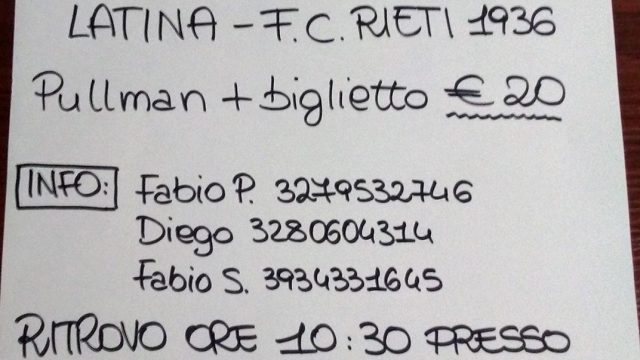 LATINA - F.C. RIETI 1936
Pullman + biglietto € 20
INFO: Fabio P. 3279532746
Diego 3280604314
Fabio S. 3934331645
RITROVO ORE 10:30 PRESSO